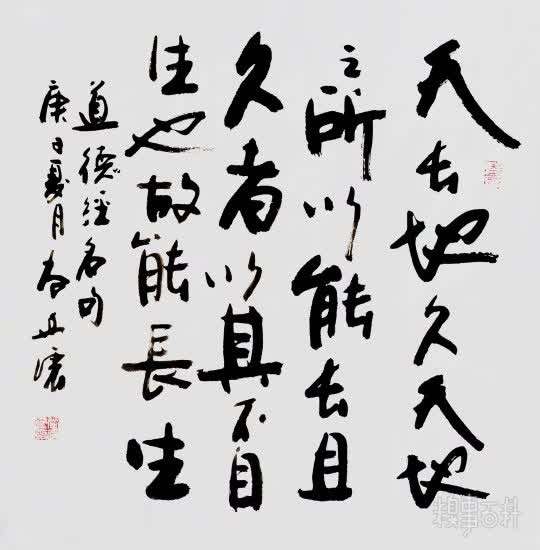 天长地久天地
之所以能长且
久者以其不自
生也故能長生
道德经名句
庚子夏月